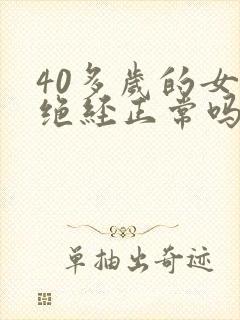 40多岁的女
绝经正常吗
单抽出奇迹